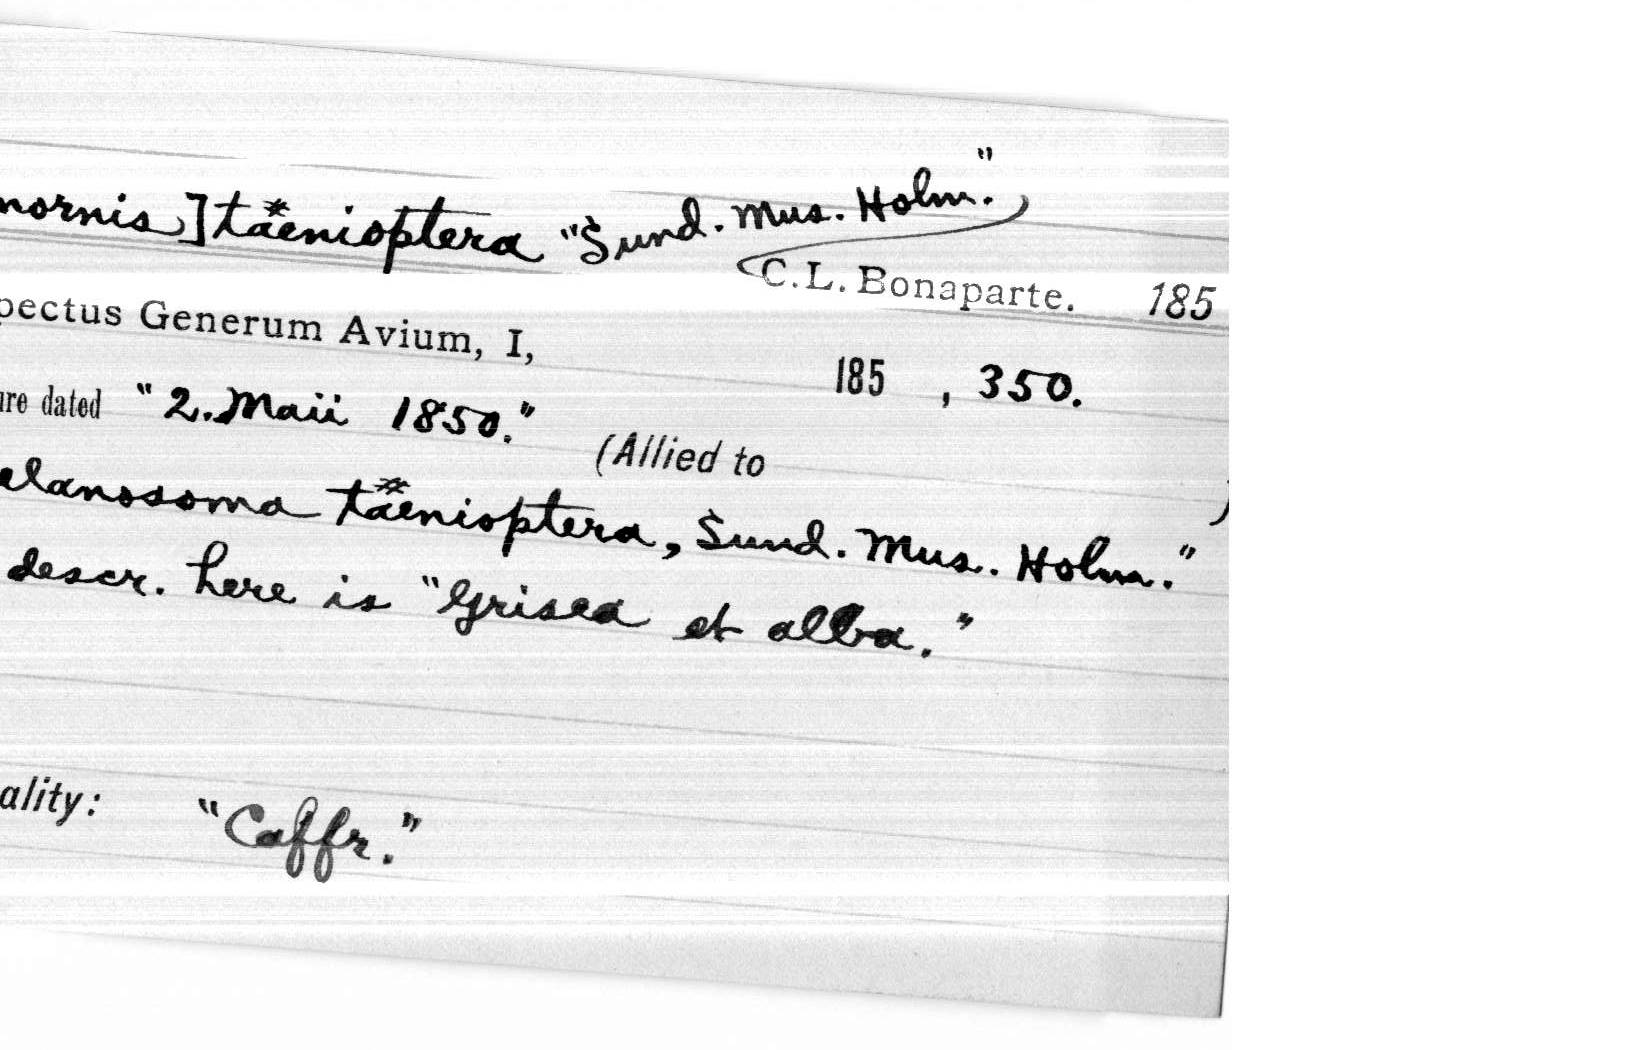 nornis] täenioptera "Sund. Mus. Holm."
C.L. Bonaparte. 185
pectus Generum Avium, I,
185 , 350.
ure dated "2. Maii 1850."
(Allied to )
elanosoma täenioptera, Sund. Mus. Holm."
descr. here is "Grisea et alba."
ality: "Caffr."